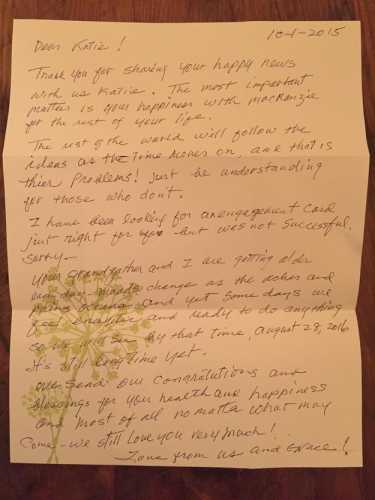 10-1-2015
Dear Katie!
Thank you for sharing your happy news
with us Katie. The most important
matter is your happiness with Mackenzie
for the rest of your life.
The rest of the world will follow the
ideas as the time moves on, and that is
thier problems! Just be understanding
for those who don't.
I have been looking for an engagement card
just right for you but was not successful.
Sorry—
Your grandfather and I are getting older
every day - moods change as the aches and
pains and yet some days we
feel and ready to do anything
so we'll see by that time, August 28, 2016
It's still long time yet.
We send our Congratulations and
blessings for your health and happiness
and most of all no matter what may
come - we still love you very much!
Love from us and Grace!